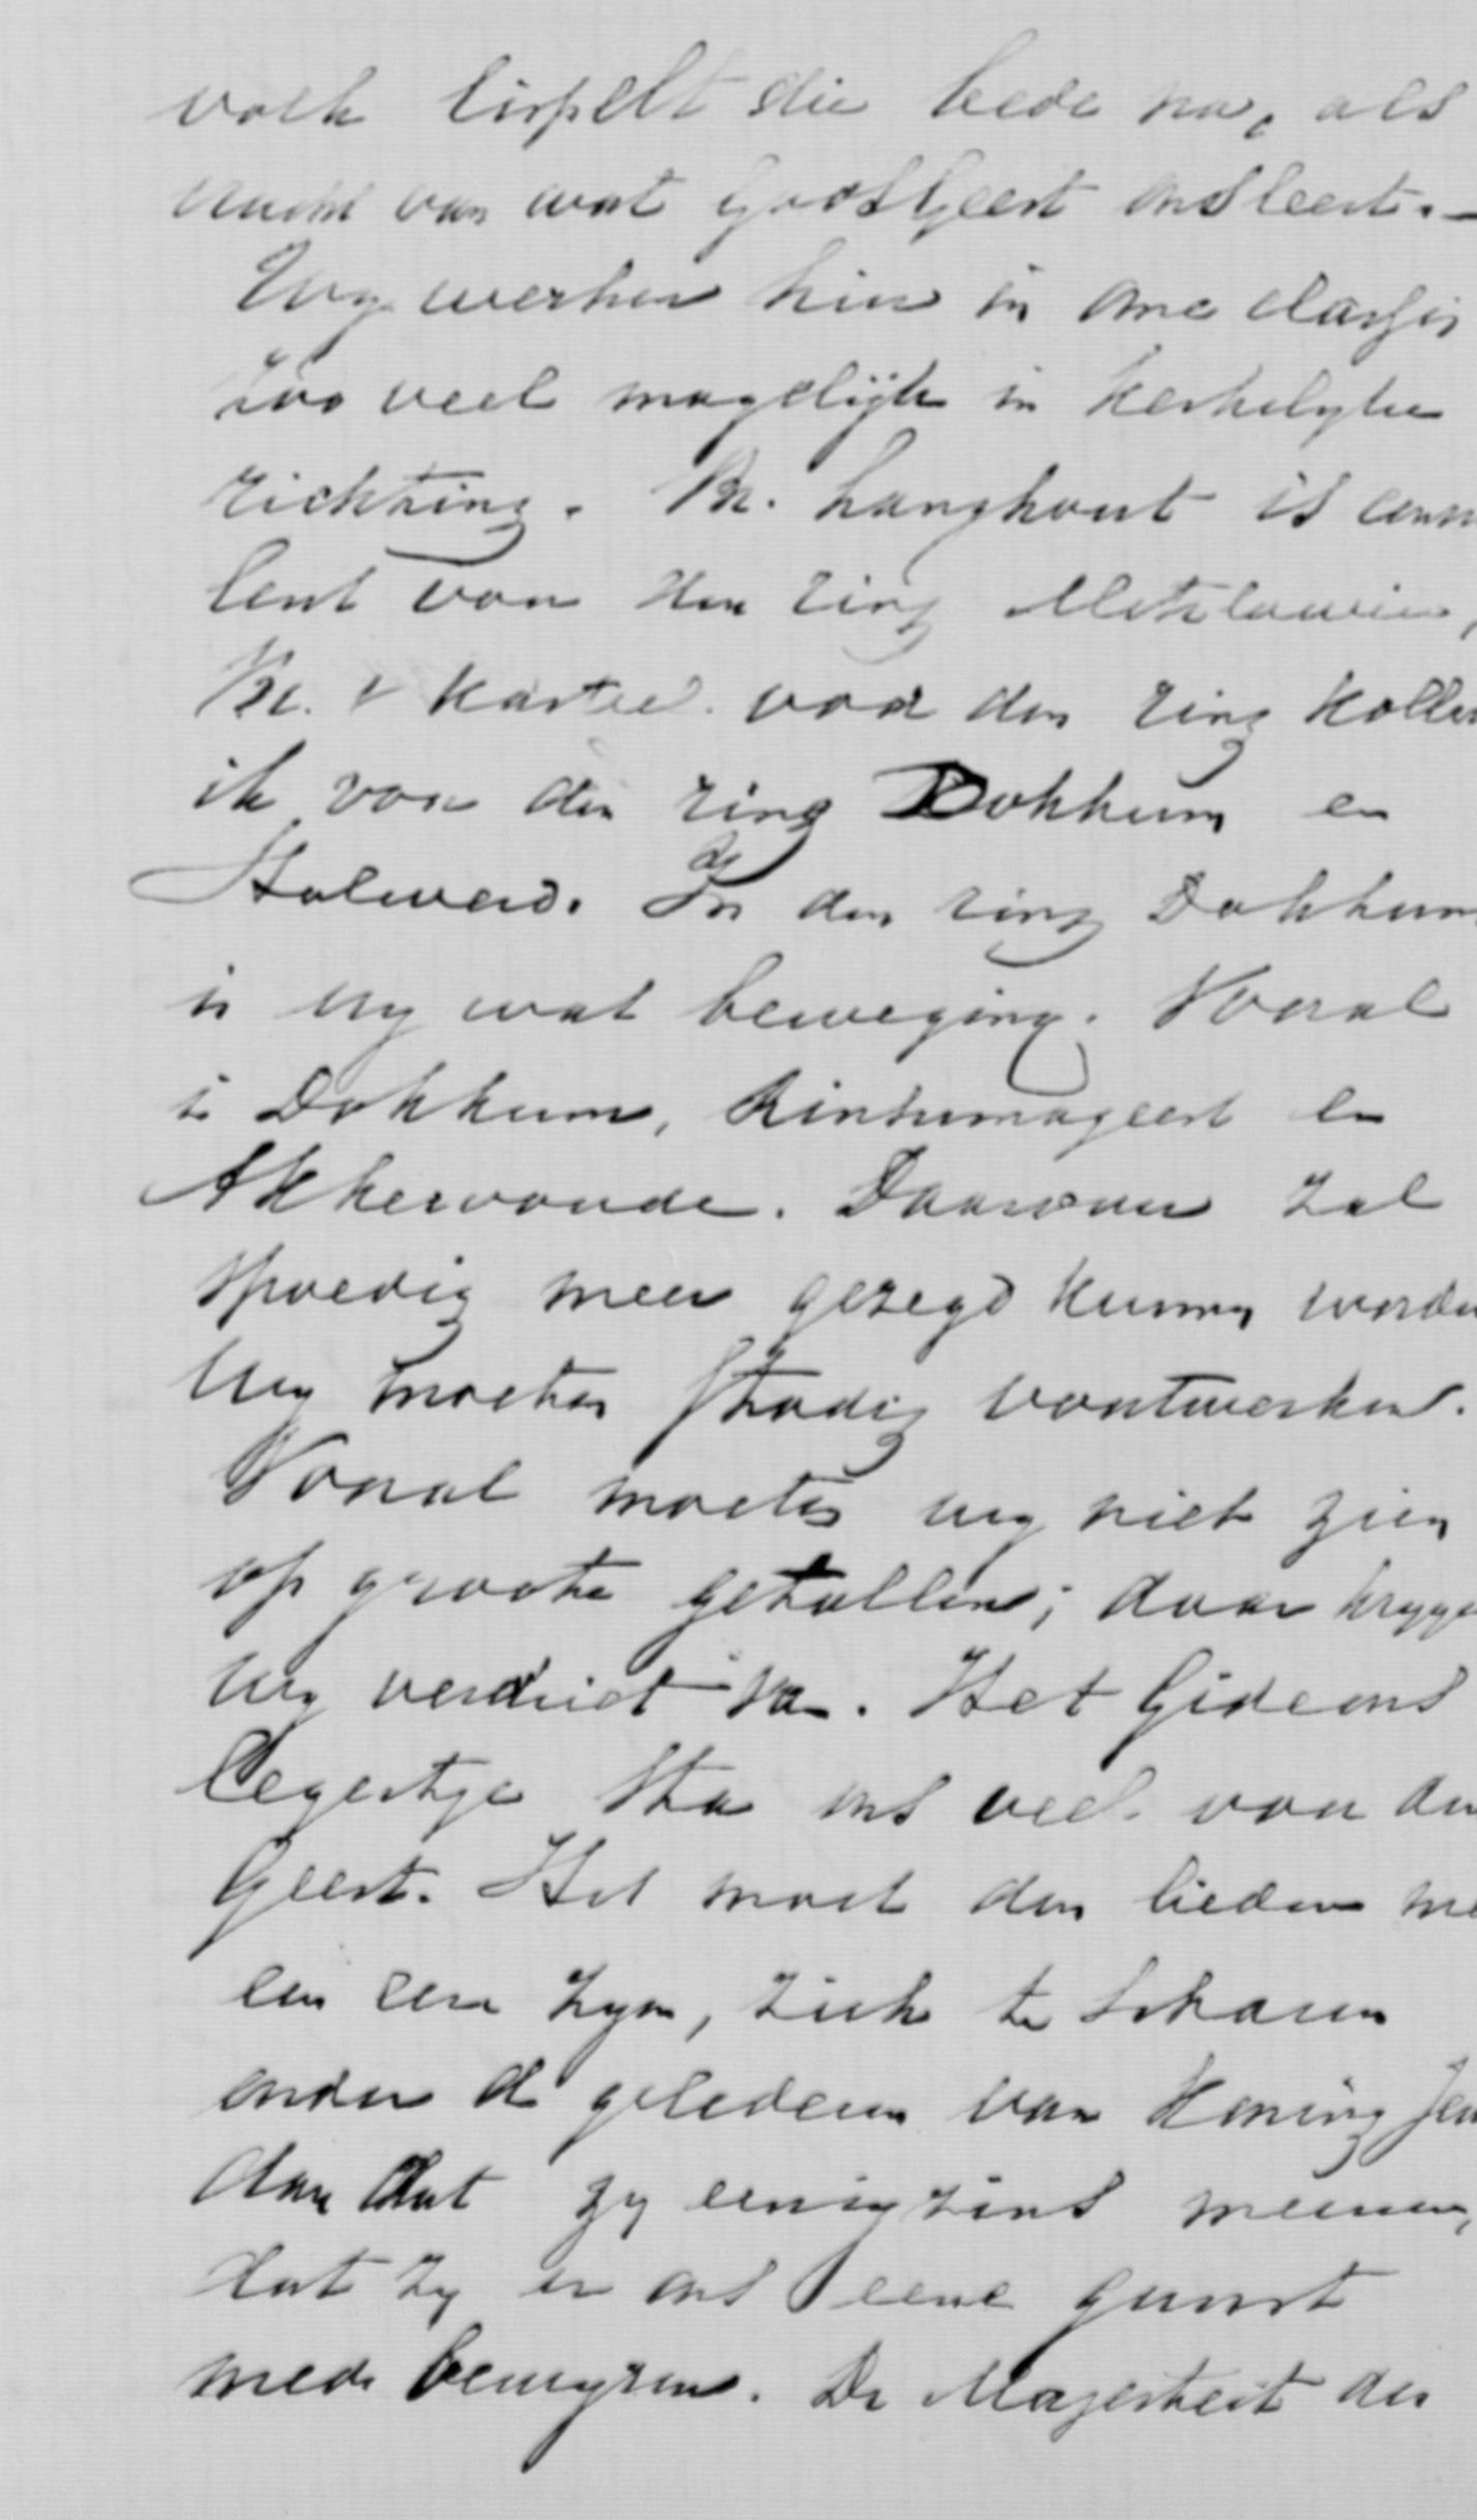 volk lispelt die bede na, als
vrucht van wat Gods Geest ons leert. –
Wy werken hier in onze classis
zoo veel mogelijk in kerkelyke
richting. Br. Langhout is consu
lent voor den ring Metslawier,
Br. v Kasteel voor den ring Kollum
ik voor den ring Dokkum en
Holwerd. In den ring Dokkum
is nog wat beweging. Vooral
in Dokkum, Rinsumageest en
Akkerwoude. Daarover zal
spoedig meer gezegd kunnen worden
Wy moeten stadig voortwerken.
Vooral moeten wy niet zien
op groote getallen; daar krygen
wy verdriet van. Het Gideons
legertje sta ons veel voor den
Geest. Het moet den lieden me
een eere zyn, zich te scharen
onder de gelederen van Koning Jezus
dan dat zy eenigzins meenen,
dat zy er ons eene gunst
mede bewyzen. De Majesteit des